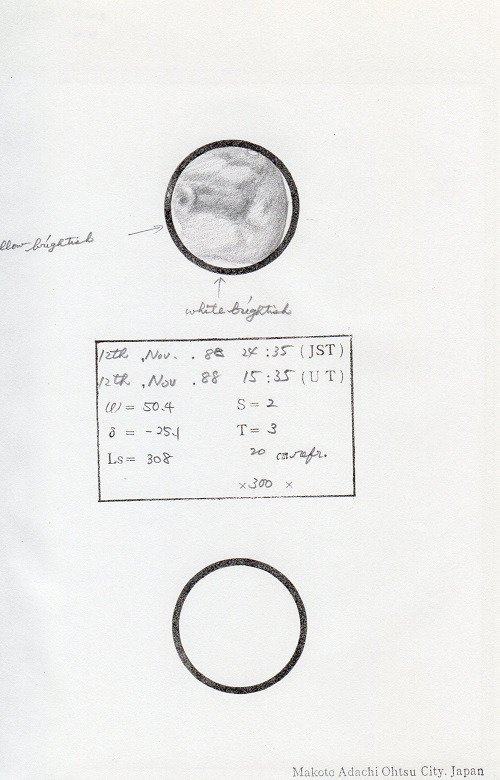 llow brightish
white brightish
12th , Nov. . 88 24 : 35 ( JST )
12th , Nov . 88 15 : 35 ( U T )
(φ) = 50.4 S = 2
δ = -25.1 T = 3
Ls = 308 20 cm refr.
×300 ×
Makoto Adachi Ohtsu City. Japan